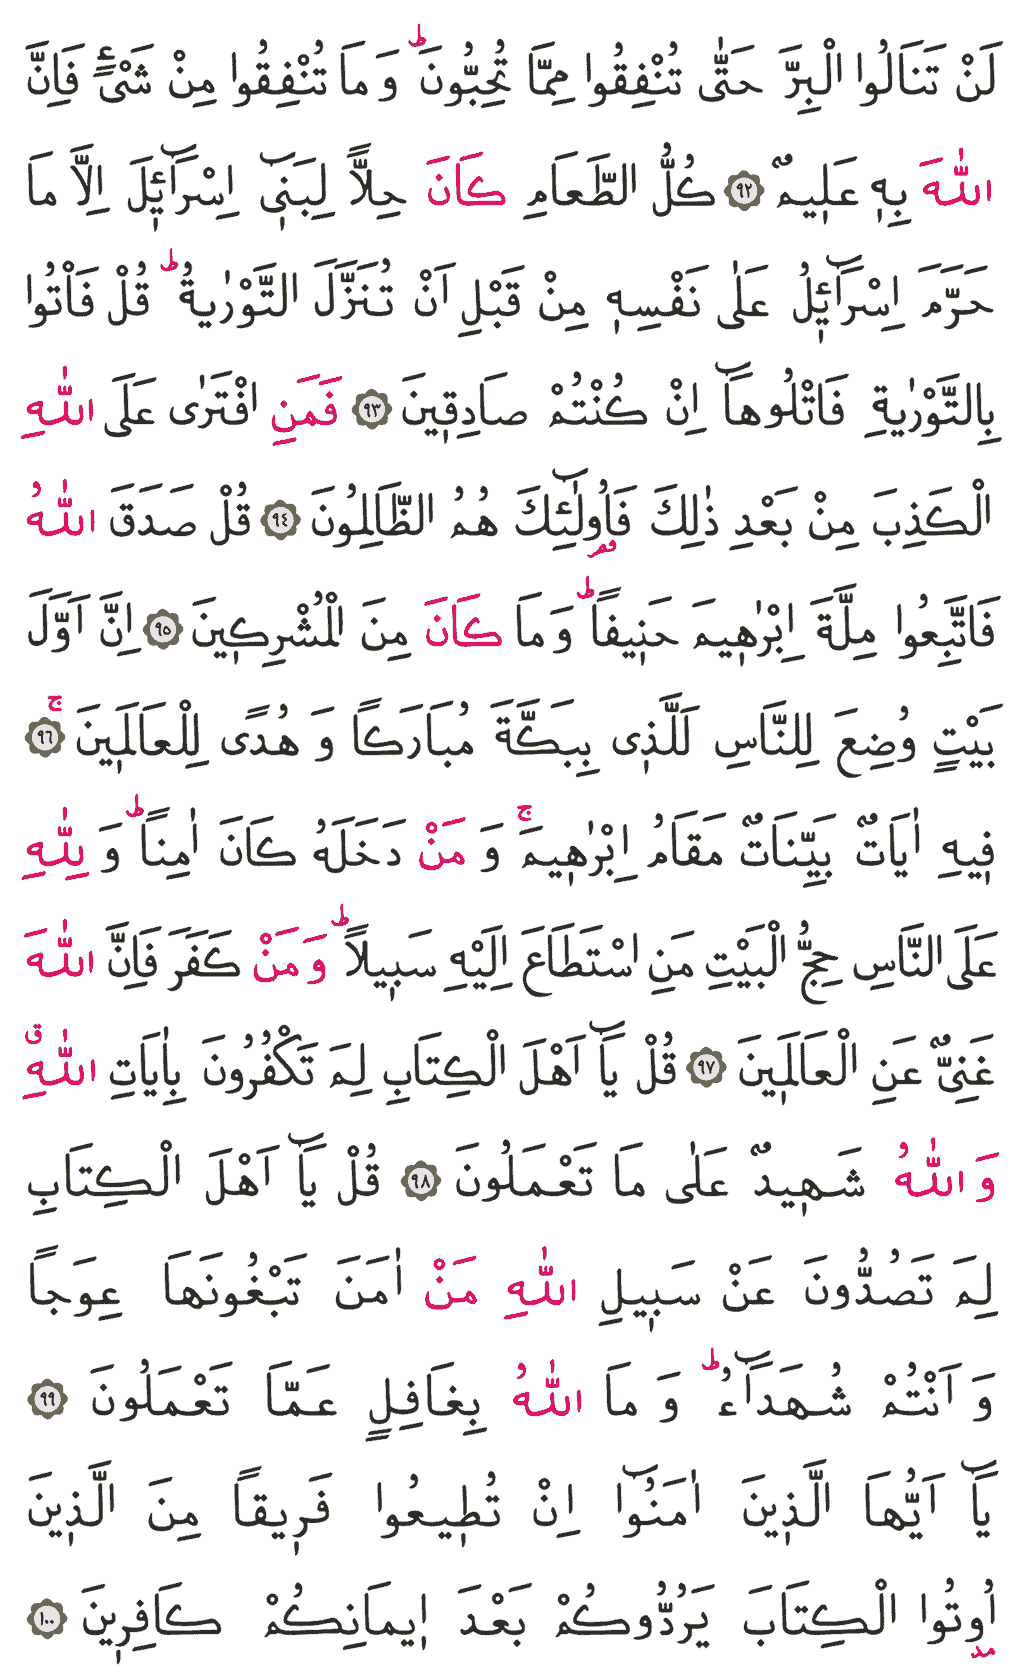 لَنْ تَنَالُوا الْبِرَّ حَتّٰى تُنْفِقُوا مِمَّا تُحِبُّونَ ؕ وَ مَا تُنْفِقُوا مِنْ شَیْءٍ فَاِنَّ
اللّٰهَ بِهٖ عَلٖيمٌ ﴿٩٢﴾ كُلُّ الطَّعَامِ كَانَ حِلاًّ لِبَنٖٓى اِسْرَٓائٖلَ اِلَّا مَا
حَرَّمَ اِسْرَٓائٖلُ عَلٰى نَفْسِهٖ مِنْ قَبْلِ اَنْ تُنَزَّلَ التَّوْرٰيةُ ؕ قُلْ فَاْتُوا
بِالتَّوْرٰيةِ فَاتْلُوهَٓا اِنْ كُنْتُمْ صَادِقٖينَ ﴿٩٣﴾ فَمَنِ افْتَرٰى عَلَى اللّٰهِ
الْكَذِبَ مِنْ بَعْدِ ذٰلِكَ فَاُولٰٓئِكَ هُمُ الظَّالِمُونَ ﴿٩٤﴾ قُلْ صَدَقَ اللّٰهُ
فَاتَّبِعُوا مِلَّةَ اِبْرٰهٖيمَ حَنٖيفًا ؕ وَ مَا كَانَ مِنَ الْمُشْرِكٖينَ ﴿٩٥﴾ اِنَّ اَوَّلَ
بَيْتٍ وُضِعَ لِلنَّاسِ لَلَّذٖى بِبَكَّةَ مُبَارَكًا وَ هُدًى لِلْعَالَمٖينَ ۚ ﴿٩٦﴾
فٖيهِ اٰيَاتٌ بَيِّنَاتٌ مَقَامُ اِبْرٰهٖيمَ ۚ وَ مَنْ دَخَلَهُ كَانَ اٰمِنًا ؕ وَ لِلّٰهِ
عَلَى النَّاسِ حِجُّ الْبَيْتِ مَنِ اسْتَطَاعَ اِلَيْهِ سَبٖيلاً ؕ وَ مَنْ كَفَرَ فَاِنَّ اللّٰهَ
غَنِىٌّ عَنِ الْعَالَمٖينَ ﴿٩٧﴾ قُلْ يَٓا اَهْلَ الْكِتَابِ لِمَ تَكْفُرُونَ بِاٰيَاتِ اللّٰهِ ق
وَ اللّٰهُ شَهٖيدٌ عَلٰى مَا تَعْمَلُونَ ﴿٩٨﴾ قُلْ يَٓا اَهْلَ الْكِتَابِ
لِمَ تَصُدُّونَ عَنْ سَبٖيلِ اللّٰهِ مَنْ اٰمَنَ تَبْغُونَهَا عِوَجاً
وَ اَنْتُمْ شُهَدَٓاءُ ؕ وَ مَا اللّٰهُ بِغَافِلٍ عَمَّا تَعْمَلُونَ ﴿٩٩﴾
يَٓا اَيُّهَا الَّذٖينَ اٰمَنُٓوا اِنْ تُطٖيعُوا فَرٖيقاً مِنَ الَّذٖينَ
اُوتُوا الْكِتَابَ يَرُدُّوكُمْ بَعْدَ اٖيمَانِكُمْ كَافِرٖينَ ﴿١٠٠﴾